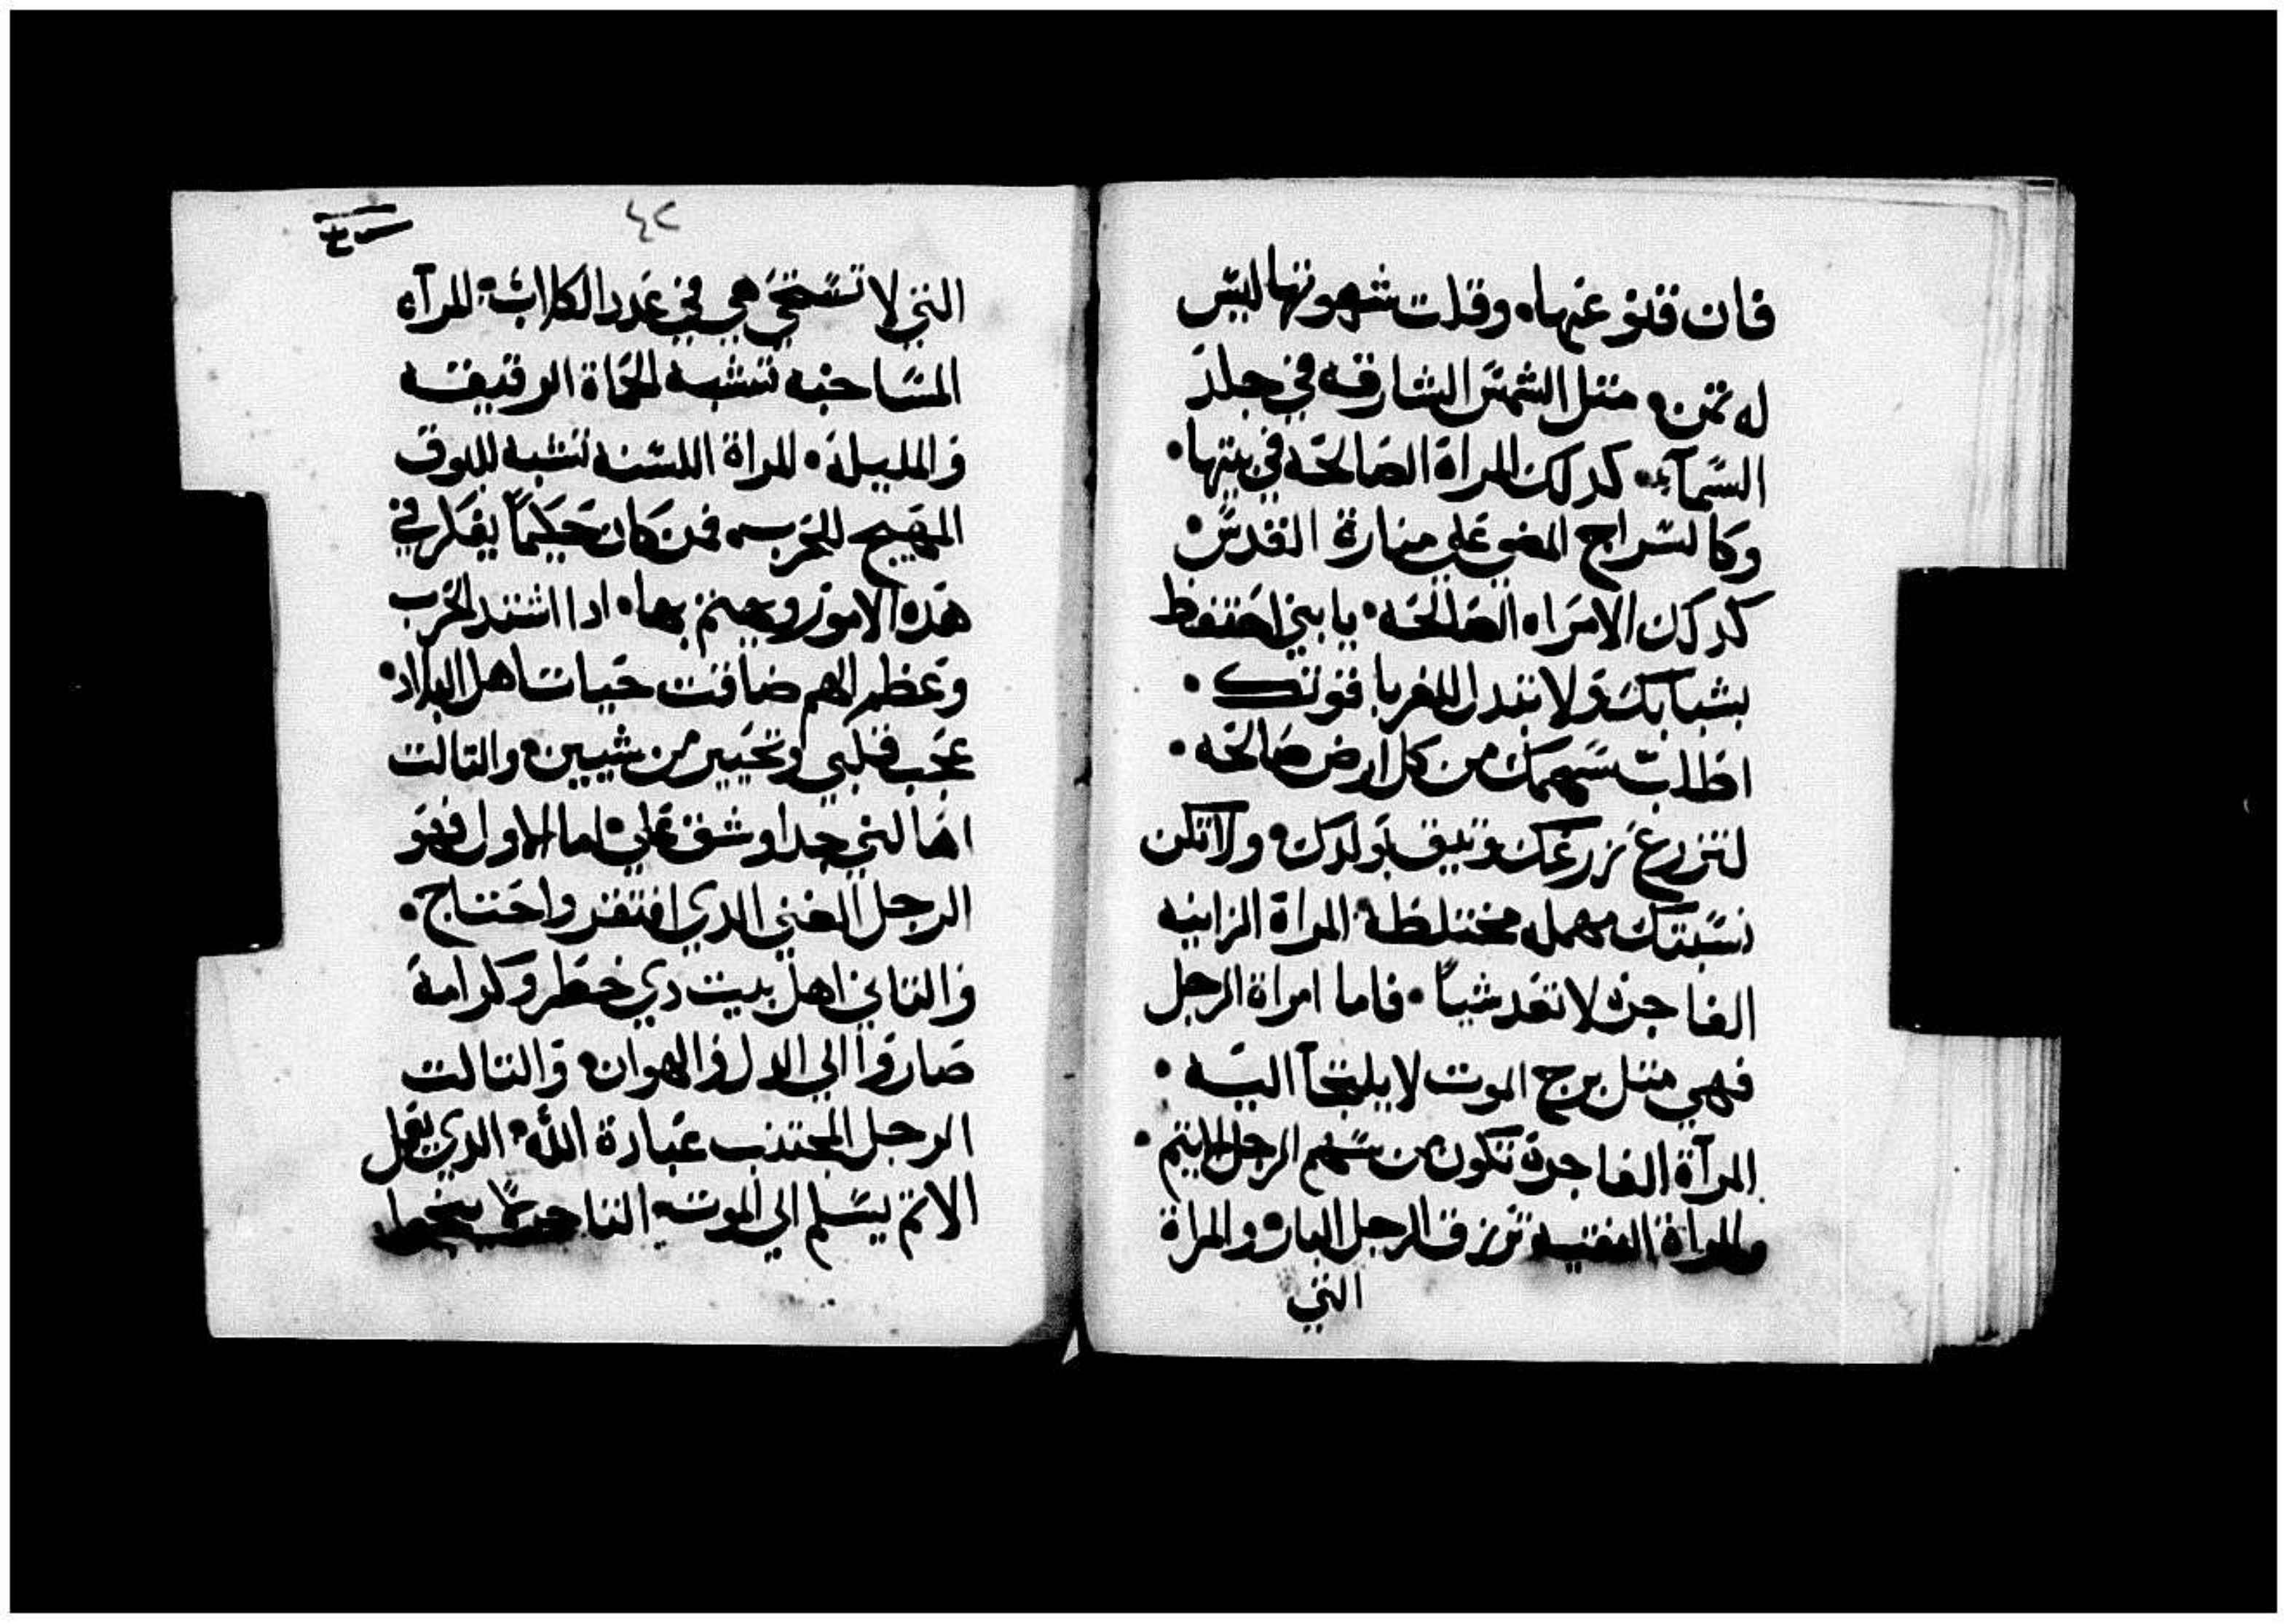 فان قنو عنها. وقلت شهوتها ليس
له تمن. متل الشمس الشارقه في جلد
السمآء. كدلك المراة الصالحه في بيتها.
وكالسراج المضي علي منارة القدس.
كدلك الامراه الصالحه. يا بني احتفظ
بشبابك ولا تبدل للغربا قوتك.
اطلب سهمك من كل ارض صالحه.
لتزرع زرعك وتيق بولدك. ولا تكن
نسبتك مهمله مختلطة. المراة الزانيه
الفاجره لا تعد شياً. فاما امراة الرجل
فهي متل برج الموت لا يلتجآ اليه.
المرآة الفاجرة تكون من سهم الرجل الاتيم.
والمراة النقيه ترزق الرجل البار. والمراة
التي
٤٢
التي لا تستحي هي في عدد الكلاب. المرآه
المساحنه تشبه الحماة الرقيقه
والمليله. المراة اللسنه تشبه البوق
المهيج للحرب. فمن كان حكيماً يفكر في
هده الامور ويهتم بها. ادا اشتد الحرب
وعظم الهم ضاقت حيات اهل البلاد.
عجب قلبي وتحير من شيين. والتالت
اهالني جدا وشق علي. اما الاول فهو
الرجل الغني الدي افتقر واحتاج.
والتاني اهل بيت دي خطر وكرامة
صاروا الي الدل والهوان. والتالت
الرجل المجتنب عبادة الله. الدي يعمل
الاتم يسلم الي الموت. التاجر